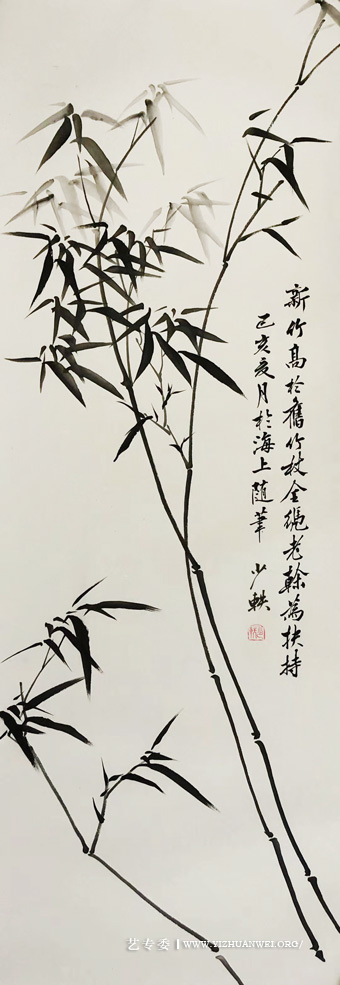 新竹高於舊竹杖全憑老榦為扶持
己亥夏月於海上隨筆 少軼
艺专委 WWW.YIZHUANWEI.ORG/